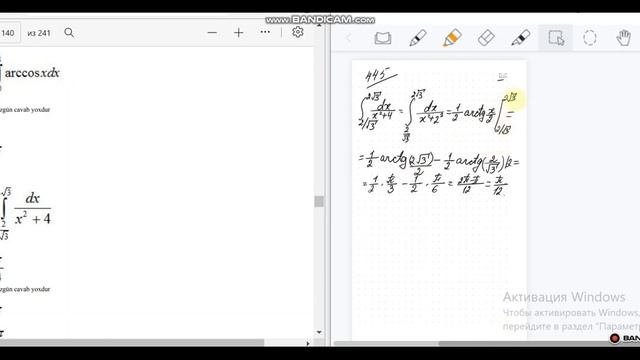 www.BANDICAM.com
140 из 241
arccosxdx
zgün cavab yoxdur
2√3 ∫ 2/√3 dx/(x² + 4)
zgün cavab yoxdur
445
∫ 2/√3 2√3 dx/(x²+4) = ∫ 2/√3 2√3 dx/(x²+2²) = 1/2 arctg x/2 | 2/√3 2√3 =
= 1/2 arctg (2√3)/2 - 1/2 arctg (2/√3)/2 =
= 1/2 · π/3 - 1/2 · π/6 = (2π-π)/12 = π/12.
Активация Windows
Чтобы активировать Windows,
перейдите в раздел "Парамет
BAN